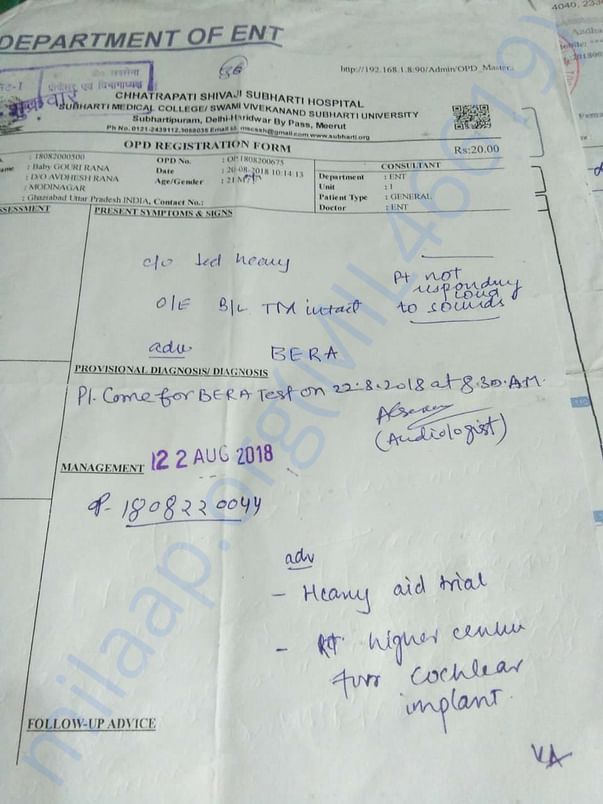 4040, 233
DEPARTMENT OF ENT
56
http://192.168.1.8:90/Admin/OPD_Master..
शुक्रवार
CHHATRAPATI SHIVAJI SUBHARTI HOSPITAL
SUBHARTI MEDICAL COLLEGE/ SWAMI VIVEKANAND SUBHARTI UNIVERSITY
Subhartipuram, Delhi-Haridwar By Pass, Meerut
Ph No. 0121-2439112,3058035 Email id. mscssh@gmail.com www.subharti.org
OPD REGISTRATION FORM
Rs:20.00
: 18082000500
OPD No. : OP.1808200675
CONSULTANT
ame : Baby GOURI RANA
Date : 20-08-2018 10:14:13
Department : ENT
: D/O AVDHESH RANA
Age/Gender : 21
Unit : 1
: MODINAGAR
Patient Type : GENERAL
: Ghaziabad Uttar Pradesh INDIA, Contact No.:
Doctor : ENT
SSESSMENT
PRESENT SYMPTOMS & SIGNS
c/o ded heavy
Pt not
responding
loud
to sounds
O/E B/L TM intact
adv. BERA
PROVISIONAL DIAGNOSIS/ DIAGNOSIS
Pl. Come for BERA Test on 22.8.2018 at 8.30.A.M.
(Audiologist)
MANAGEMENT 22 AUG 2018
1808220044
adv
- Heany aid trial
- higher centre
for Cochlear
implant.
FOLLOW-UP ADVICE
milaap.org(MIL46619)